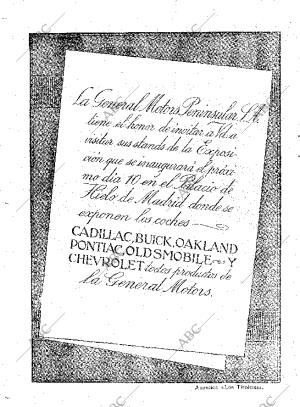 La General Motors Peninsular, S.A.
tiene el honor de invitar a Vd. a
visitar sus stands de la Exposi-
ción que se inaugurará el próxi-
mo día 10 en el Palacio de
Hielo de Madrid donde se
exponen los coches —
CADILLAC, BUICK, OAKLAND
PONTIAC, OLDSMOBILE Y
CHEVROLET todos productos de
la General Motors.
Anuncios «Los Tiroleses».
ABC
ABC
ABC
ABC
ABC
ABC